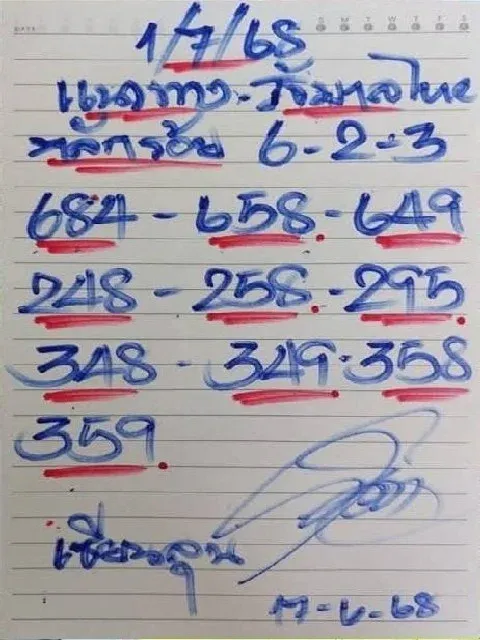 DATE S M T W T F S
1/7/68
แนวทาง-รัฐบาลไทย
หลักร้อย 6-2-3
684 - 658 - 649
248 - 258 - 295
348 - 349 - 358
359
เซียนลุน
17-6-68